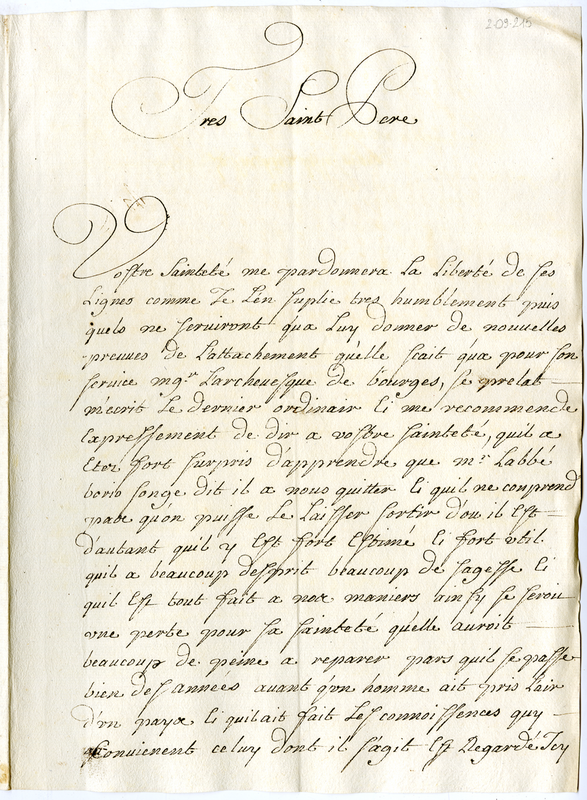 2-09-215
Tres Saint Pere
Vostre Sainteté me pardonnera la liberté de ses
lignes comme Je l'en suplie tres humblement puis
quels ne serviront qua luy donner de nouvelles
preuves de l'attachement qu'elle scait qua pour son
service mgr. Larchevesque de bourges, se prelat
m'ecrit le dernier ordinair li me recommende
expressement de dir a vostre sainteté, quil a
Etez fort surpris d'apprendre que mr Labbé
borio songe dit il a nous quitter li quil ne comprend
pax qu'on puisse le laisser sortir d'ou il Est
d'autant quil y Est fort Estime li fort util
quil a beaucoup desprit beaucoup de sagesse li
quil Est tout fait a nox maniers ainsy se seroit
une perte pour sa sainteté qu'elle auroit
beaucoup de peine a reparer pars quil se passe
bien des années avant q'un homme ait pris l'air
d'un payx li quilait fait des connoissences quy
Conviennent celuy dont il s'agit Est Regardé Icy